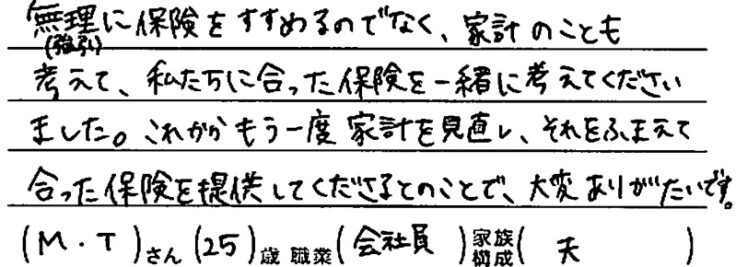 無理に保険をすすめるのでなく、家計のことも
(強引)
考えて、私たちに合った保険を一緒に考えてください
ました。これからもう一度家計を見直し、それをふまえて
合った保険を提供してくださるとのことで、大変ありがたいです。
(M・T)さん(25)歳 職業(会社員)家族構成(夫)